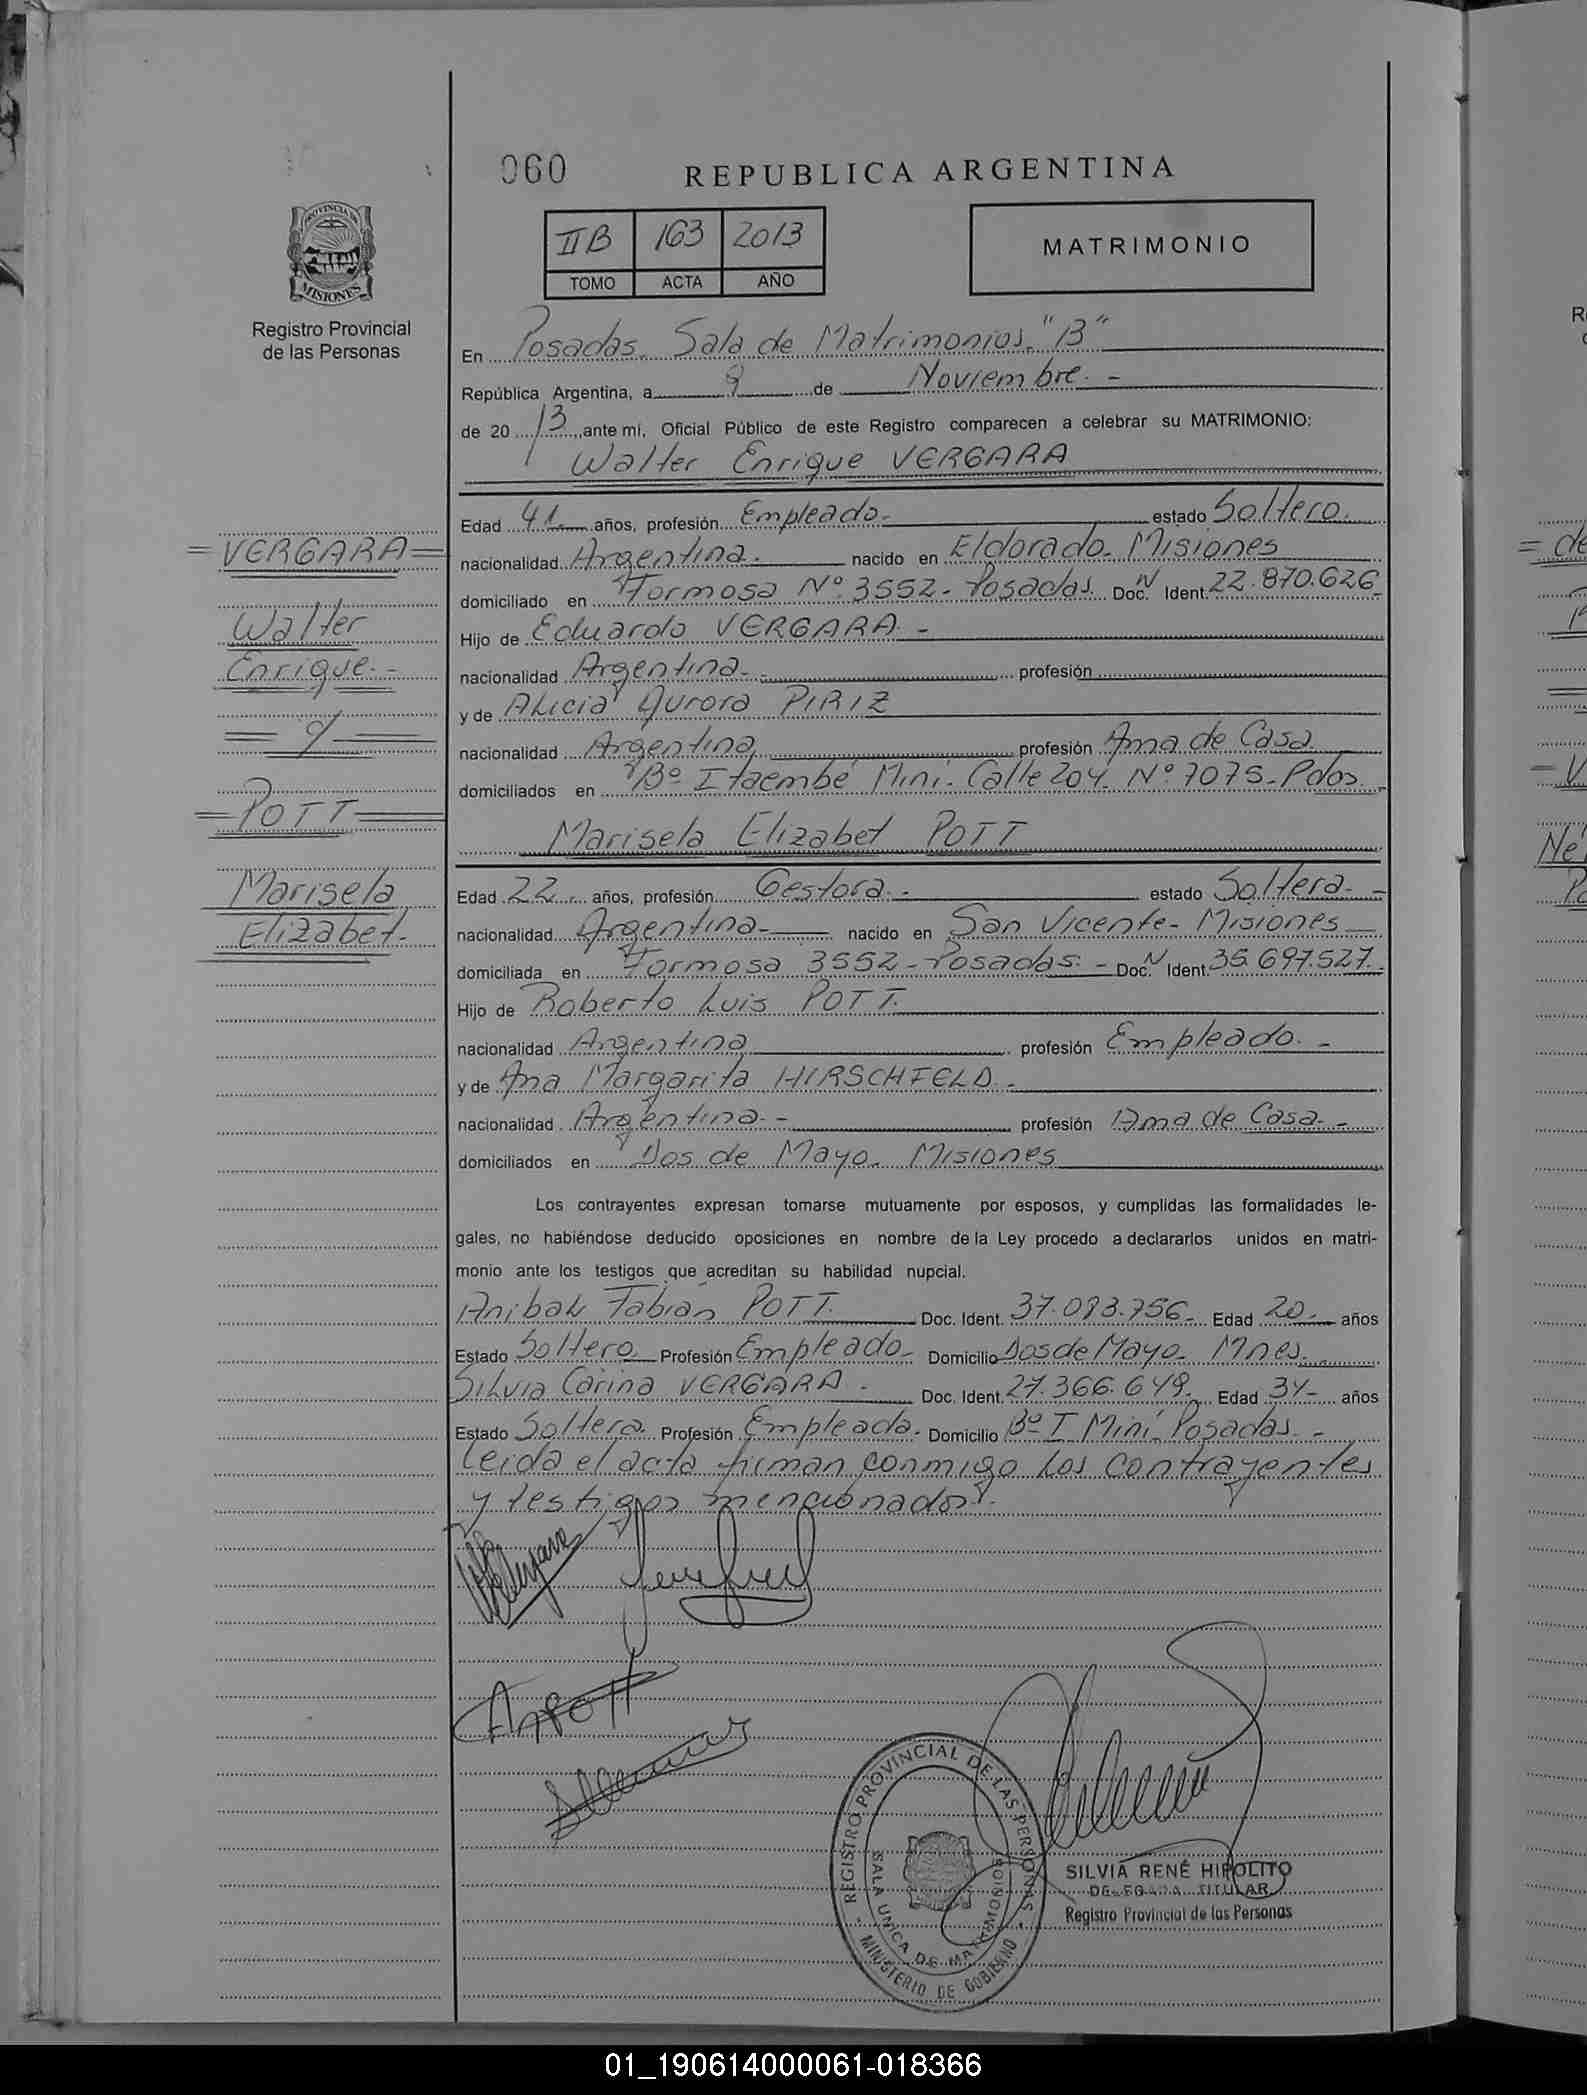 060
REPUBLICA ARGENTINA
IIB 163 2013
TOMO ACTA AÑO
MATRIMONIO
PROVINCIA DE
MISIONES
Registro Provincial
de las Personas
En Posadas. Sala de Matrimonios "B"
República Argentina, a 8 de Noviembre.-
de 20 13 ante mi, Oficial Público de este Registro comparecen a celebrar su MATRIMONIO:
Walter Enrique VERGARA
Edad 41 años, profesión Empleado.- estado Soltero.
nacionalidad Argentina. nacido en Eldorado. Misiones
domiciliado en Formosa Nº 3552- Posadas. Doc. N Ident. 22.870.626
Hijo de Eduardo VERGARA.-
nacionalidad Argentina.- profesión
y de Alicia Aurora PIRIZ
nacionalidad Argentina profesión Ama de Casa
domiciliados en Bº Itaembé Miní. Calle 204. Nº 7075- Pdas.
Marisela Elizabet POTT
Edad 22 años, profesión Gestora.- estado Soltera.-
nacionalidad Argentina- nacido en San Vicente- Misiones
domiciliada en Formosa 3552- Posadas.- Doc. N Ident. 35.697.527.
Hijo de Roberto Luis POTT.
nacionalidad Argentina profesión Empleado.-
y de Ana Margarita HIRSCHFELD.-
nacionalidad Argentina.- profesión Ama de Casa.-
domiciliados en Dos de Mayo. Misiones
Los contrayentes expresan tomarse mutuamente por esposos, y cumplidas las formalidades le-
gales, no habiéndose deducido oposiciones en nombre de la Ley procedo a declararlos unidos en matri-
monio ante los testigos que acreditan su habilidad nupcial.
Anibal Fabián POTT. Doc. Ident. 37.083.756- Edad 20.- años
Estado Soltero. Profesión Empleado- Domicilio Dos de Mayo- Mnes.
Silvia Carina VERGARA. Doc. Ident. 27.366.649. Edad 34- años
Estado Soltera. Profesión Empleada. Domicilio Bº I Miní- Posadas.-
leida el acta firman conmigo los contrayentes
y testigos mencionados.
= VERGARA =
Walter
Enrique.-
= y =
= POTT =
Marisela
Elizabet-
REGISTRO PROVINCIAL DE LAS PERSONAS
SALA UNICA DE MATRIMONIOS
MINISTERIO DE GOBIERNO
SILVIA RENÉ HIPOLITO
DELEGADA TITULAR
Registro Provincial de las Personas
01_190614000061-018366